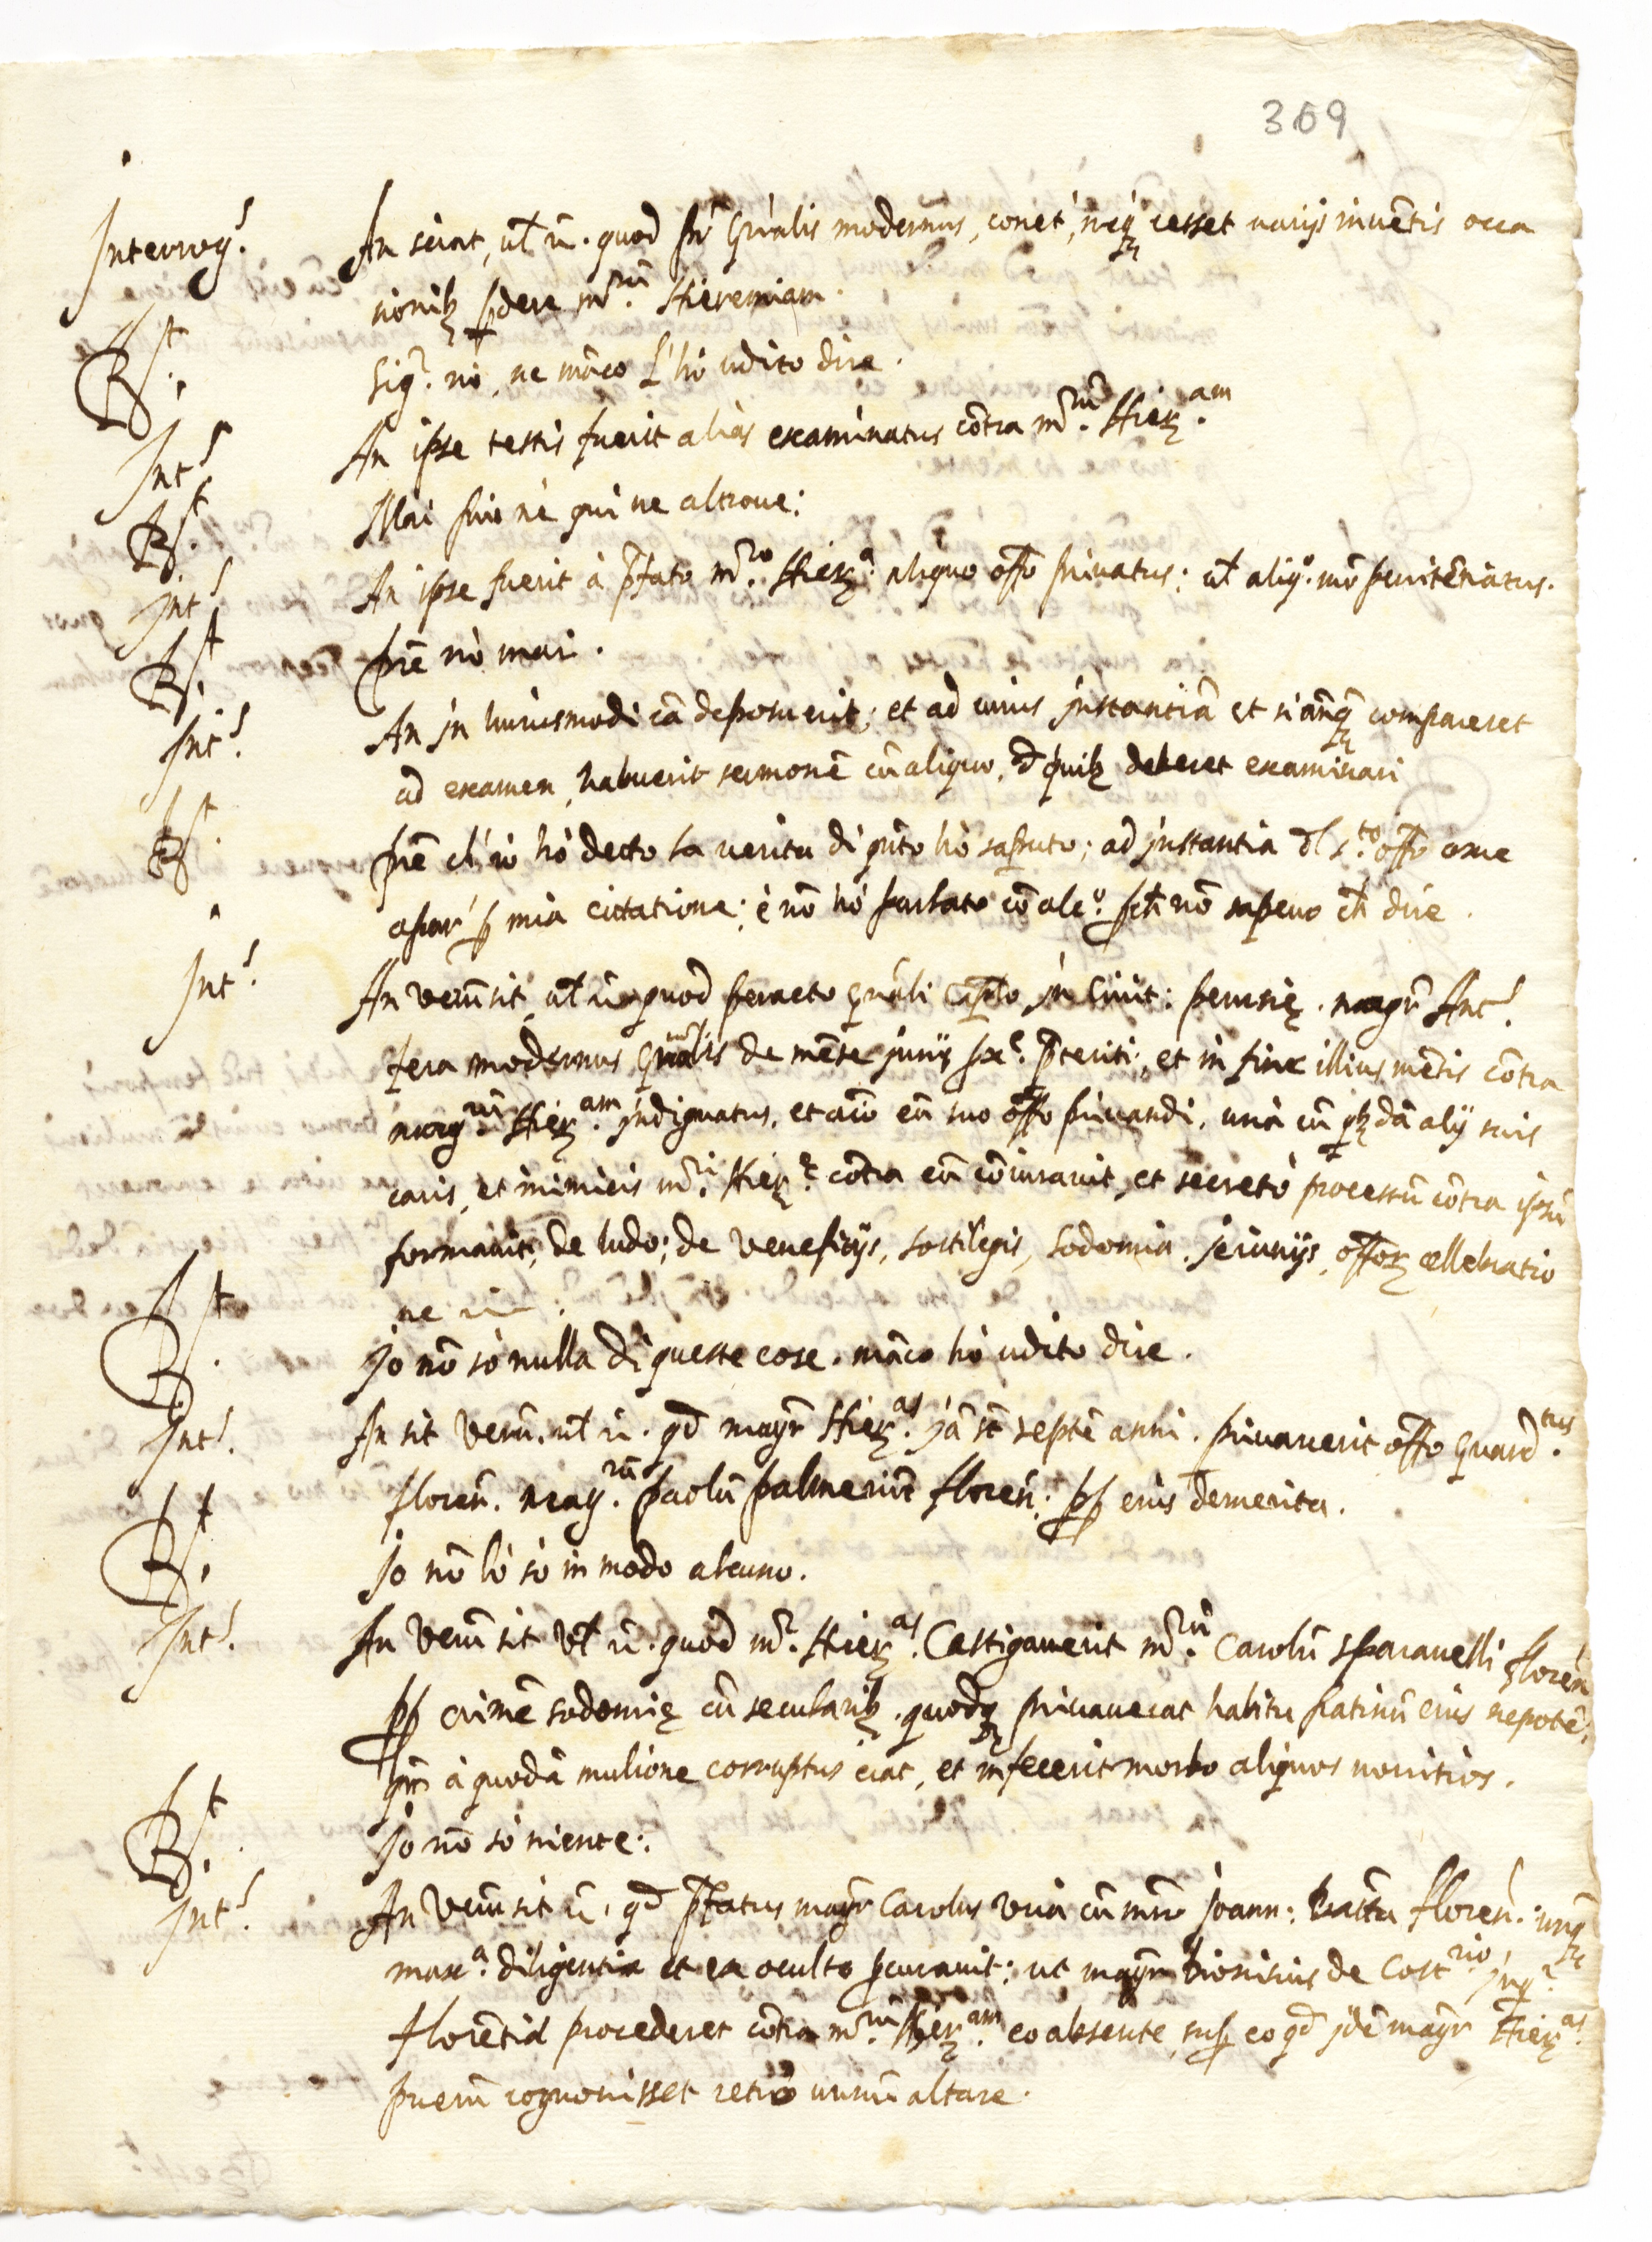 309
Interrog.s An sciat, ul̃ ũ. quod pñr Gñalis modernus, conet', neq; cesset varijs inuẽtis occa
sionib; p̱dere m.rũ Hieremiam.
R.t Sig.r nò, ne mãco l'hò udito dire.
Int.s An ipse testis fuerit aliàs examinatus cõtra m.rũ Hier.am
R.t Mai fui nè qui ne altroue:
Int.s An ipse fuerit à p̃fato m.ro Hier.a aliquo offo priuatus: ul̃ aliq.o mõ penitẽtiatus.
R.t prẽ nò mai.
Int.s An in huiusmodi cã deposuerit; et ad cuius instantiã et si anq; compareret
ad examen, habuerit sermonẽ cũ aliquo, d̃ quib; deberet examinari
R.t prẽ ch'io hò detto la verita di q̃nto hò saputo; ad instantia dl s.to offo come
apar' p̱ mia cittatione; è nõ hò parlato cõ alc.o pch̃ nõ sapeuo ch̃ dire.
Int.s An verũ sit, ul̃ ũ quod peracto gñali cap̃lo in Ciuit: perusię. magr̃ Ant.s
fera modernus gñalis de mẽse junij px.e p̃teriti, et in fine illius mẽsis cõtra
mag.rũ Hier.am indignatus, et aĩo eũ suo offo priuandi, unà cũ q̱b;dã alij suis
caris, et inimicis m.ri Hier.e cõtra eũ cõiurauit, et secretò processũ cõtra ipsũ
formauit, de ludo; de veneficijs, sortilegis, sodomia, jeiunijs, offor; cellebratio
ne ũ:
R.t Jo nõ sò nulla di queste cose, mãco hò udito dire.
Int.s An sit verũ, ul̃ ũ. qd̃ magr̃ Hier.as jã st̃ septẽ anni. priuauerit offo Guard.tus
floreñ. mag.rũ paolũ palmeriũ floreñ: pp̱ eius demerita.
R.t Jo nõ lò sò in modo alcuno.
Int.s An verũ sit vl̃ ũ. quod m.r Hier.as Castigauerit m.rũ Carolũ sparauelli floreñ
pp̱ crimẽ sodomię cũ secularib;. quodq; priuauerat habitu fratinũ eius nepotẽ;
qm̃ à quodã mulione corruptus erat, et infecerit morbo aliquos nouitios.
R.t Jo nõ sò niente:
Int.s An verũ sit ũ, qd̃ p̃fatus magr̃ Carolus vnà cũ mrõ joann: Batt̃a floreñ:
max.a diligentia et ex oculto p̱curauit; ut magr̃ Dionisius de Cost.rio inq.r
florẽtiæ procederet cõtra m.rũ Hier.am eo absente, sup̱ eo qd̃ idẽ magr̃ Hier.as
puerũ cognouisset retrò unum altare.